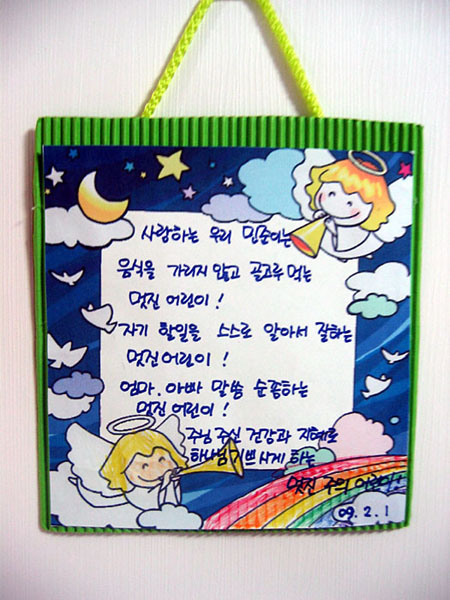 사랑하는 우리 민준이는
음식을 가리지 않고 골고루 먹는
멋진 어린이!
자기 할일을 스스로 알아서 잘하는
멋진 어린이!
엄마. 아빠 말씀 순종하는
멋진 어린이!
주님 주신 건강과 지혜로
하나님 기쁘시게 하는
멋진 주의 어린이!
09. 2. 1